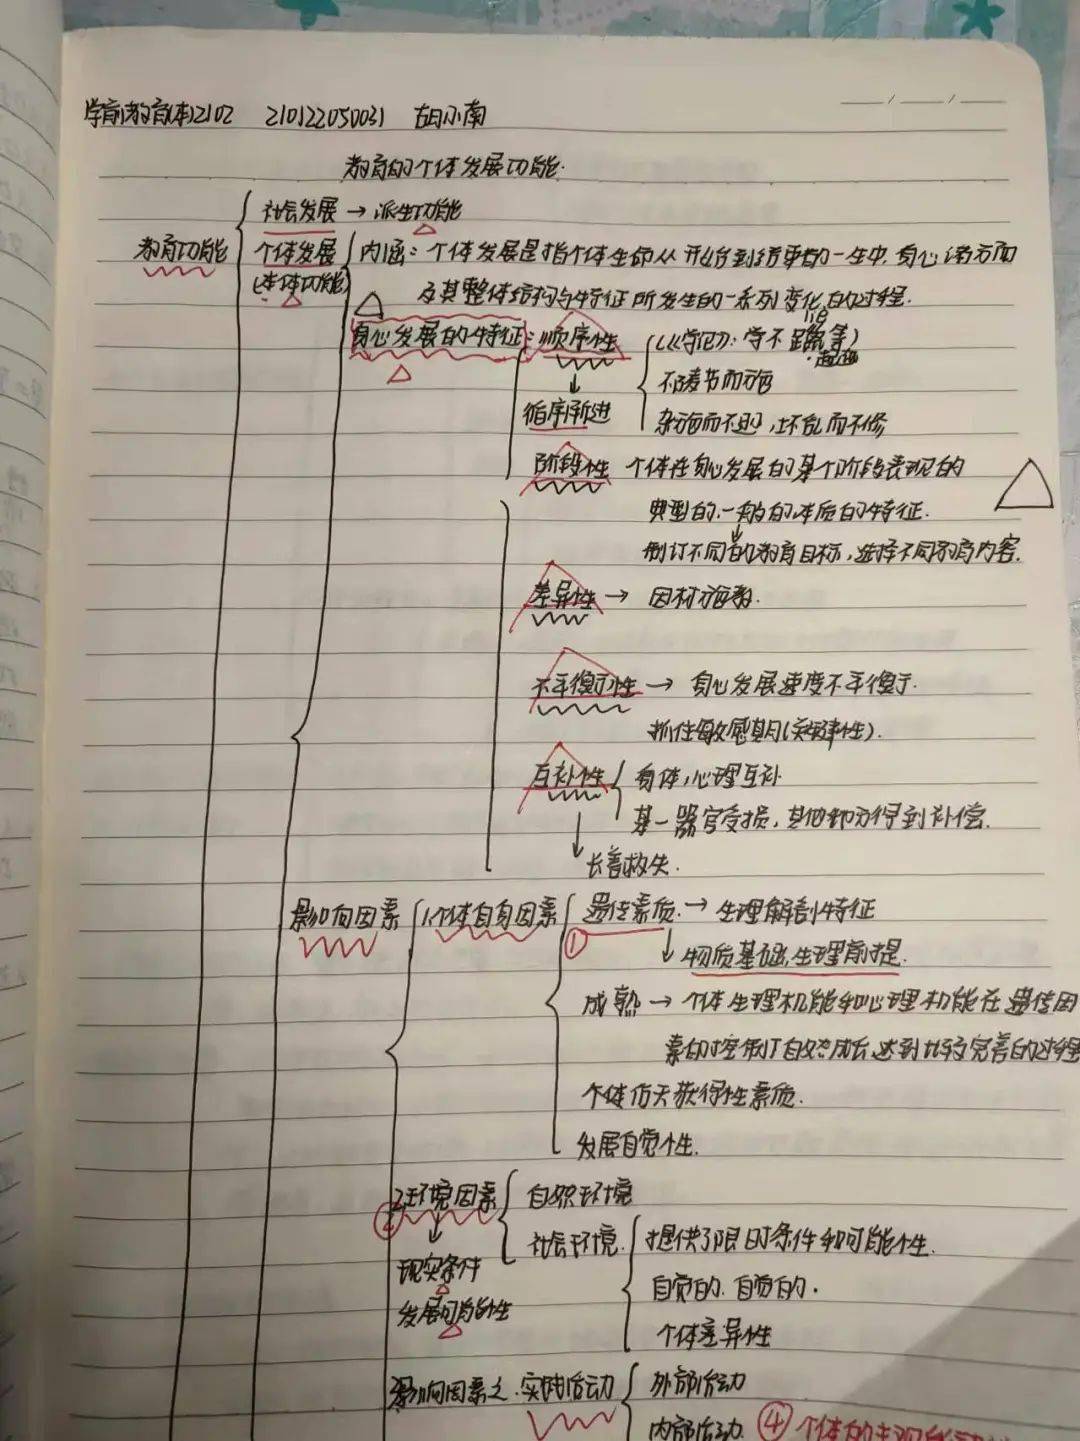 学前教育(本)2102 210122050031 胡小南
教育的个体发展功能.
社会发展 → 派生功能
教育功能 个体发展 内涵：个体发展是指个体生命从开始到结束的一生中，身心诸方面
(本体功能) 及其整体结构与特征所发生的一系列变化的过程.
身心发展的特征：顺序性 (《学记》：学不躐等)
不陵节而施
循序渐进 杂施而不逊，坏乱而不修
阶段性 个体在身心发展的某个阶段表现的
典型的.一般的.本质的特征.
制订不同的教育目标，选择不同教育内容.
差异性 → 因材施教.
不平衡性 → 身心发展速度不平衡.
抓住敏感期(关键性).
互补性 身体，心理互补
某一器官受损，其他部分得到补偿.
长善救失.
影响因素 1个体自身因素 遗传素质. → 生理解剖特征
① 物质基础，生理前提.
成熟 → 个体生理机能和心理机能在遗传因
素的控制下自然成长达到比较完善的过程
个体后天获得性素质.
发展自觉性.
2环境因素 自然环境
② 社会环境. 提供了限时条件和可能性.
现实条件 自觉的.自觉的.
发展可能性 个体差异性
影响因素之.实践活动 外部活动
内部活动. ④ 个体的主观能动